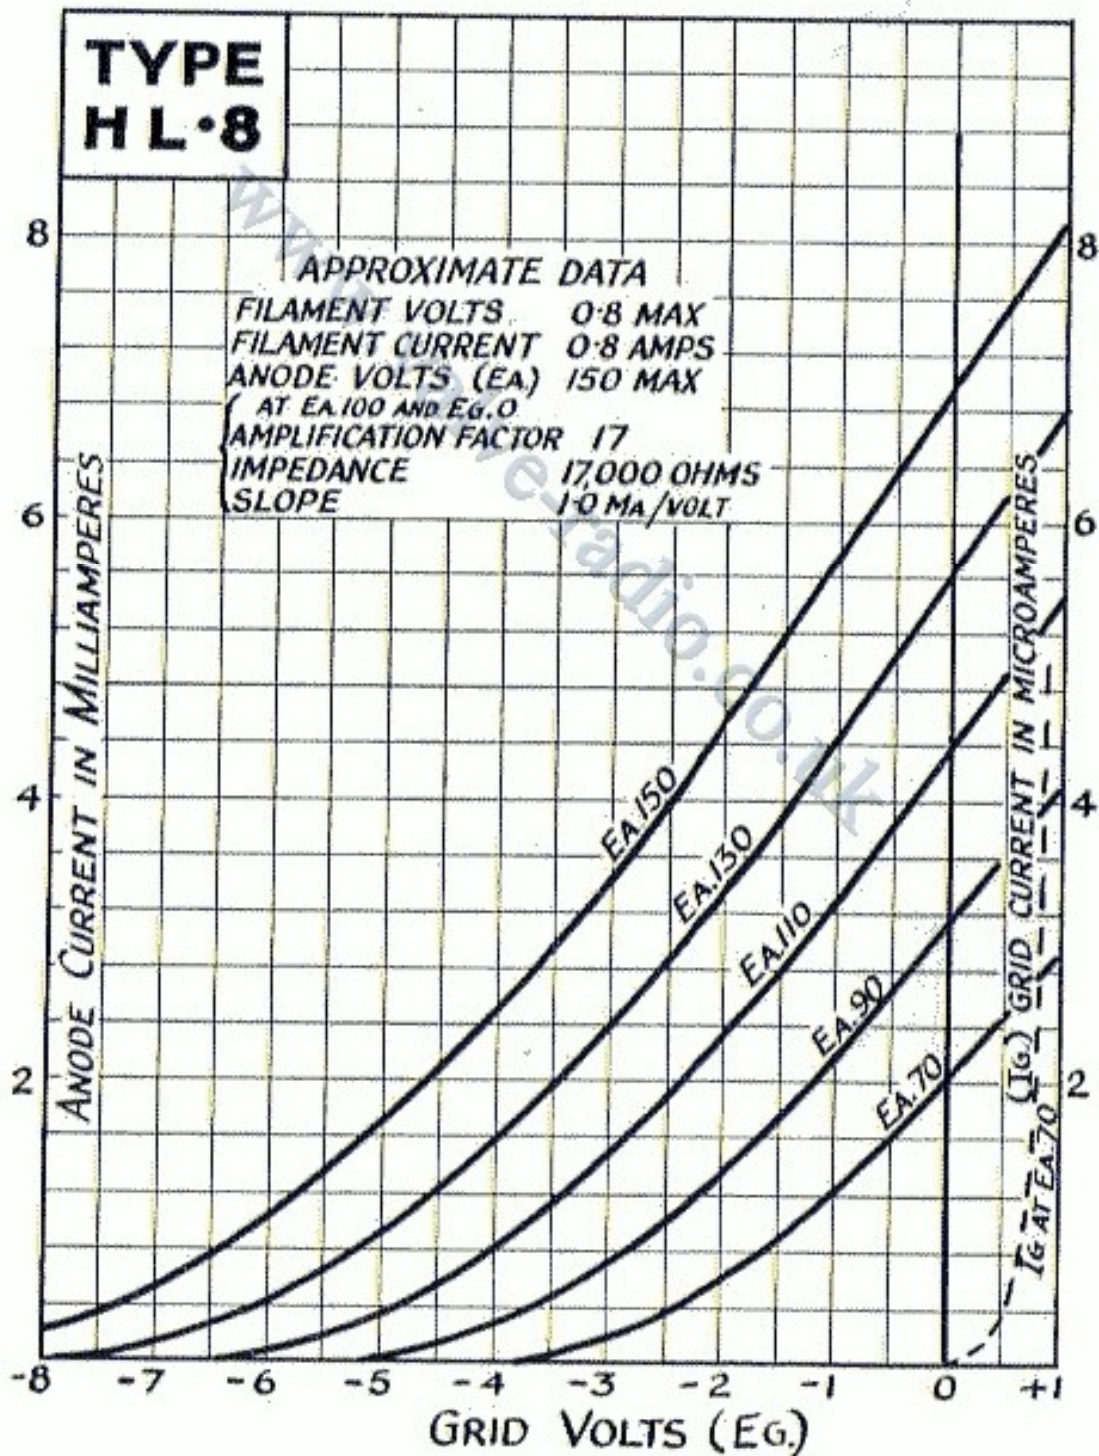 TYPE
HL·8
8
8
APPROXIMATE DATA
FILAMENT VOLTS 0·8 MAX
FILAMENT CURRENT 0·8 AMPS
ANODE VOLTS (EA.) 150 MAX
AT EA.100 AND EG.0
AMPLIFICATION FACTOR 17
IMPEDANCE 17,000 OHMS
SLOPE 1·0 MA/VOLT
www.valve-radio.co.uk
6
6
ANODE CURRENT IN MILLIAMPERES
(IG.) GRID CURRENT IN MICROAMPERES
4
4
EA.150
EA.130
EA.110
EA.90
EA.70
IG AT EA.70
2
2
-8 -7 -6 -5 -4 -3 -2 -1 0 +1
GRID VOLTS (EG.)